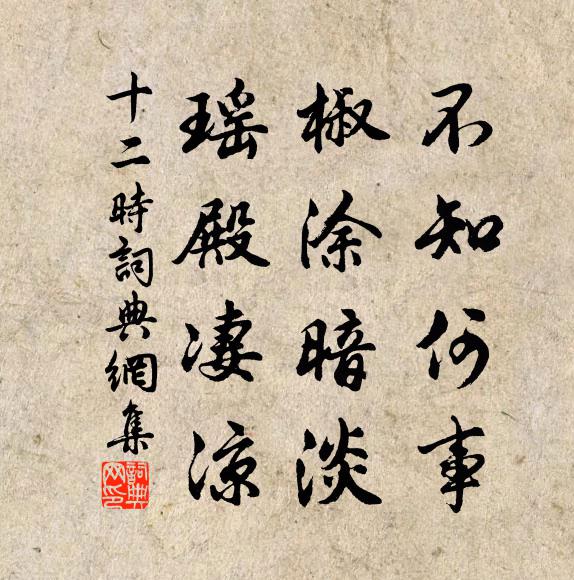 不知何事
椒涂暗淡
瑶殿凄凉
十二時詞典網集
詞典
网印